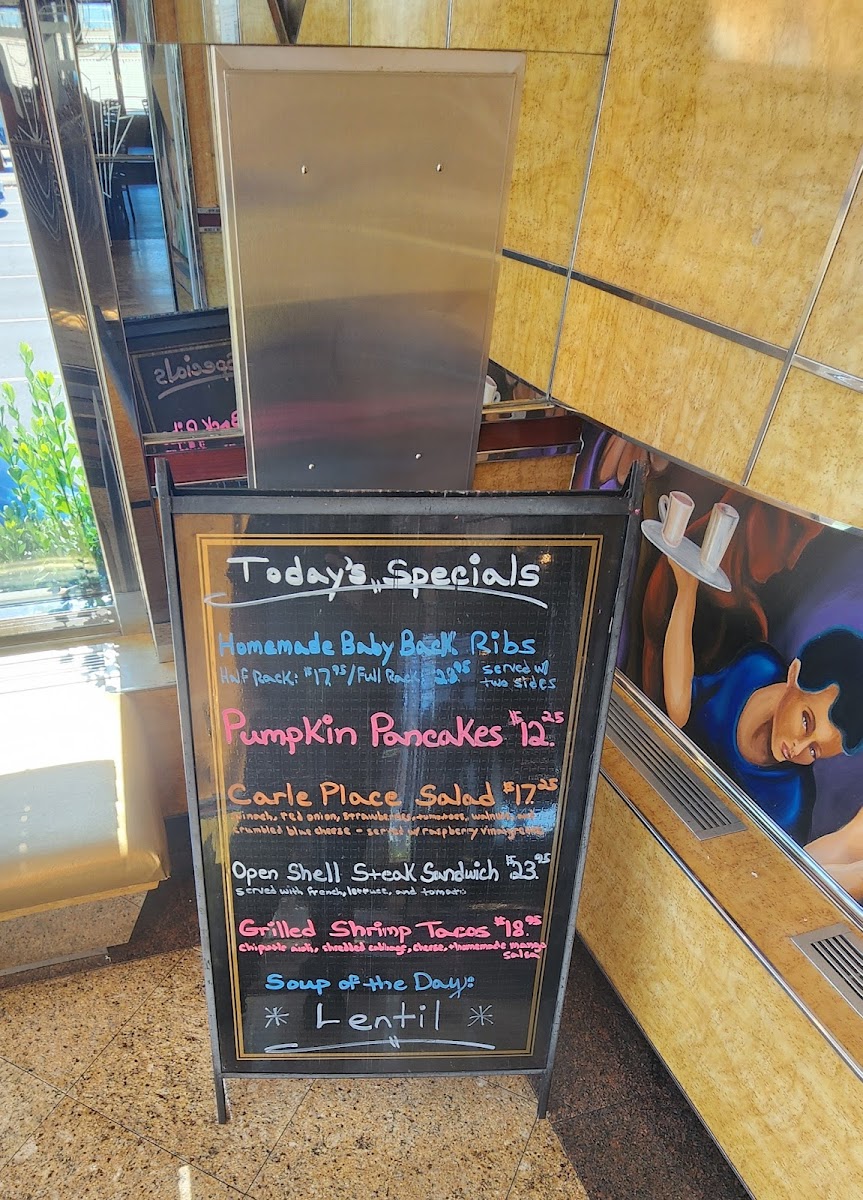 Today's Specials
Homemade Baby Back Ribs
Half Rack: $17.95/Full Rack $22.95 served w/
two sides
Pumpkin Pancakes $12.25
Carle Place Salad $17.25
spinach, red onion, strawberries, tomatoes, walnuts and
crumbled blue cheese - served w/ raspberry
Open Shell Steak Sandwich $23.95
served with french, lettuce, and tomato
Grilled Shrimp Tacos $18.95
chipotle aioli, shredded cabbage, cheese, + homemade mango
salsa
Soup of the Day:
* Lentil *
Specials
Back R